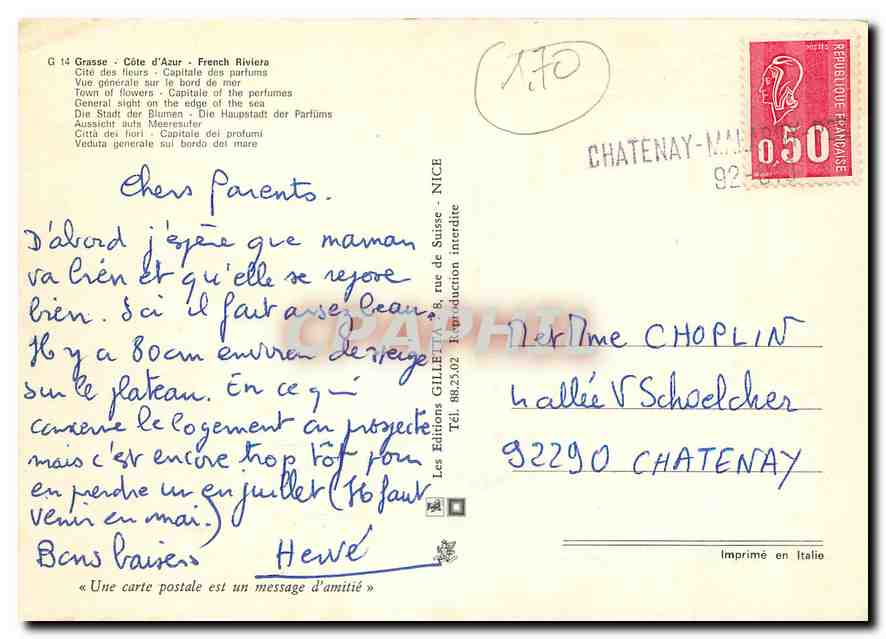 G 14 Grasse - Côte d'Azur - French Riviera
Cité des fleurs - Capitale des parfums
Vue générale sur le bord de mer
Town of flowers - Capitale of the perfumes
General sight on the edge of the sea
Die Stadt der Blumen - Die Haupstadt der Parfüms
Aussicht aufs Meeresufer
Città dei fiori - Capitale dei profumi
Veduta generale sul bordo del mare
1,70
POSTES
RÉPUBLIQUE FRANÇAISE
0,50
CHATENAY-
92-
Chers Parents.
D'abord j'espère que maman
va bien et qu'elle se repose
bien. Ici il fait assez beau.
Il y a 80cm environ de neige
sur le plateau. En ce qui
concerne le logement on prospecte
mais c'est encore trop tôt pour
en prendre un en juillet (Il faut
venir en mai.)
Bons baisers Hervé
« Une carte postale est un message d'amitié »
Les Editions GILLETTA - 8, rue de Suisse - NICE
Tél. 88.25.02 Reproduction interdite
CPAPHIL
M et Mme CHOPLIN
4 allée V Schoelcher
92290 CHATENAY
Imprimé en Italie